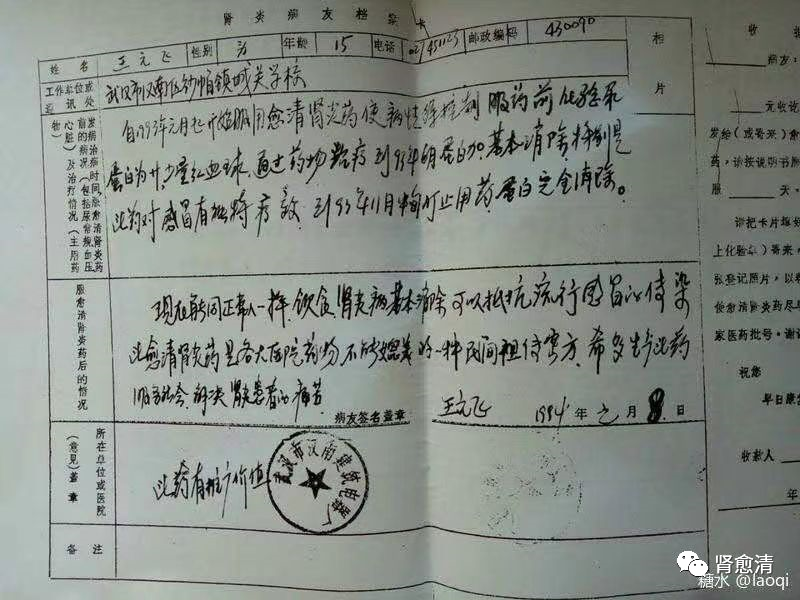 肾炎病友档案卡
姓名 王元飞 性别 男 年龄 15 电话 027451123 邮政编码 430090 相片
工作单位或通讯处 武汉市汉南区纱帽镇城关学校
发病治疗时间，服愈清肾炎药前的病况（包括尿常规血压心脏）及治疗情况（主用药物）
自1993年元月起开始服用愈清肾炎药使病情 控制 服药前化验尿
蛋白为卄 少量红血球，通过药物治疗 到93年 月蛋白 基本消除，特别是
此药对感冒有独特疗效，到93年11月 停止用药，蛋白完全消除。
服愈清肾炎药后的情况
现在能同正常人一样，饮食，肾炎病基本消除可以抵抗流行感冒的传染
此愈清肾炎药是各大医院药物，不能媲美的一种民间祖传秘方，希多生产此药
服务社会，解决肾炎患者的痛苦
病友签名盖章 王元飞 1994年 月8日
所在单位或医院（意见）盖章
此药有推广价值
武汉市汉南建筑电器厂
备注
收据
病友：
元收说
发给（或寄来）
药，请按说明书
服 天，
请把卡片
上化验单）寄来，
张登记照片，以
使愈清肾炎药尽
家医药批号。谢
祝您
早日康
收款人
年
肾愈清
糖水 @laoqi